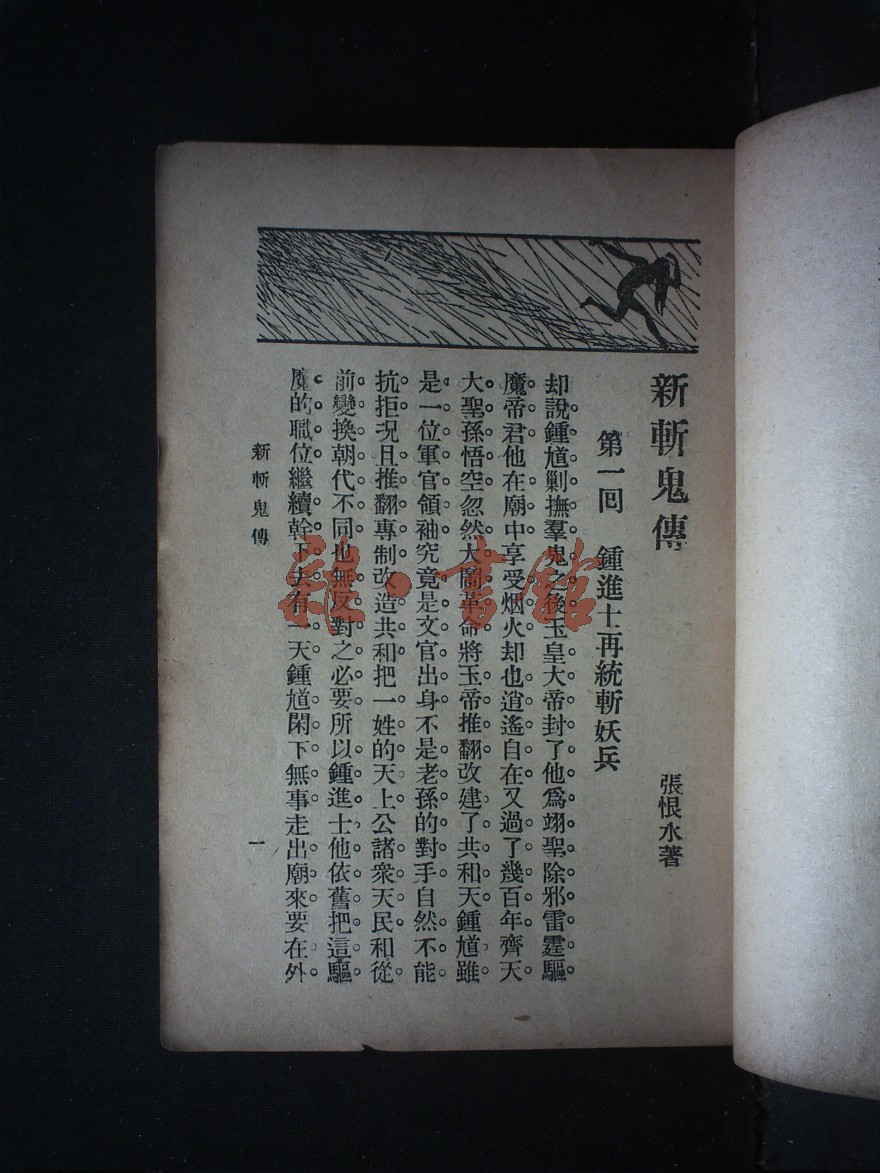 新斬鬼傳
張恨水著
第一回　鍾進士再統斬妖兵
却說鍾馗剿撫羣鬼之後玉皇大帝封了他爲翊聖除邪雷霆驅
魔帝君他在廟中享受烟火却也逍遙自在又過了幾百年齊天
大聖孫悟空忽然大鬧革命將玉帝推翻改建了共和天鍾馗雖
是一位軍官領袖究竟是文官出身不是老孫的對手自然不能
抗拒況且推翻專制改造共和把一姓的天上公諸衆天民和從
前變換朝代不同也無反對之必要所以鍾進士他依舊把這驅
魔的職位繼續幹下去有一天鍾馗閑下無事走出廟來要在外
新斬鬼傳
一
雜·書館